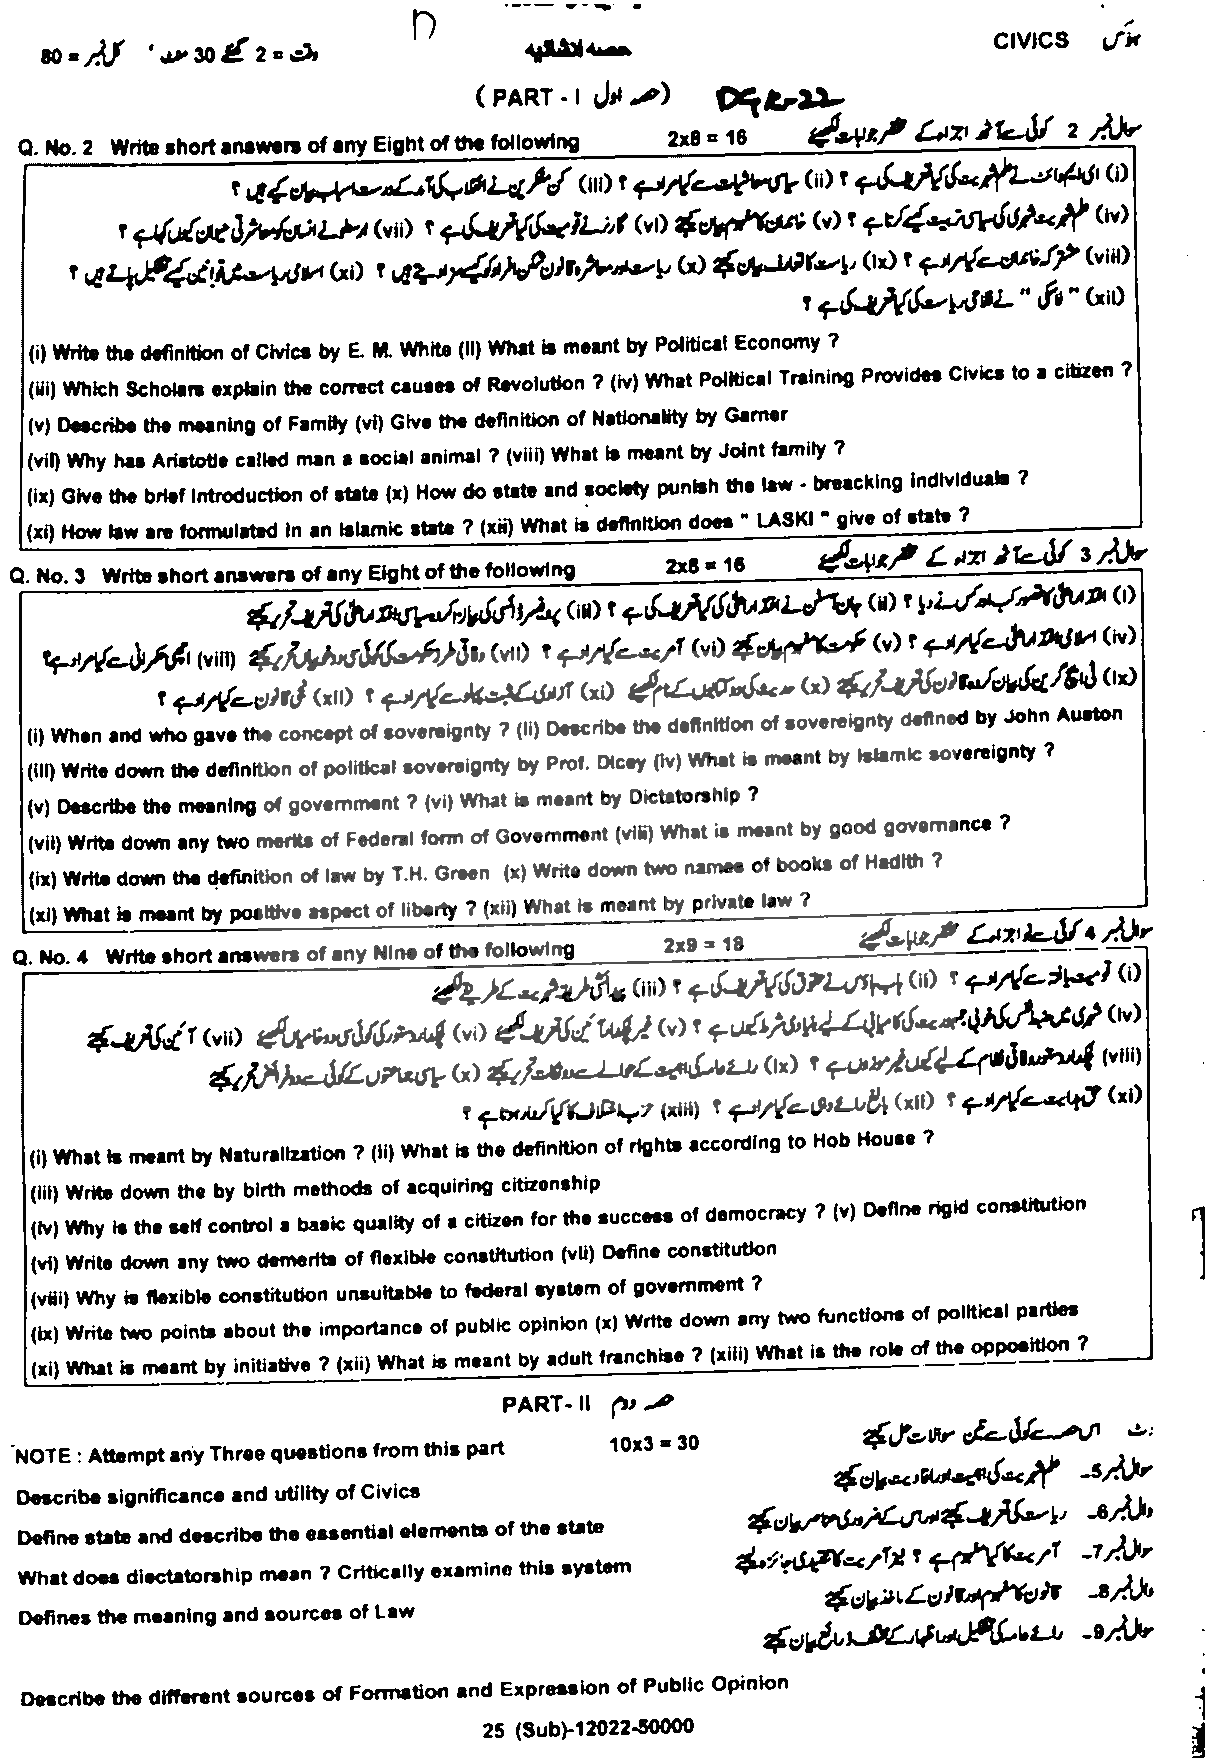 n
CIVICS
حصہ انشائیہ
وقت = 2 گھنٹے 30 منٹ ' کل نمبر = 80
(PART - I حصہ اول) DGK-22
Q. No. 2 Write short answers of any Eight of the following 2x8 = 16 سوال نمبر 2 کوئی سے آٹھ اجزاء کے مختصر جوابات لکھئے
(i) ای ایم وائٹ نے علم شہریت کی کیا تعریف کی ہے ؟ (ii) سیاسی معاشیات سے کیا مراد ہے ؟ (iii) کن مفکرین نے انقلاب کی آمد کے درست اسباب بیان کیے ہیں ؟
(iv) علم شہریت شہری کی سیاسی تربیت کیسے کرتا ہے ؟ (v) خاندان کا مفہوم بیان کیجئے (vi) گارنر نے قومیت کی کیا تعریف کی ہے ؟ (vii) ارسطو نے انسان کو معاشرتی حیوان کیوں کہا ہے ؟
(viii) مشترکہ خاندان سے کیا مراد ہے ؟ (ix) ریاست کا تعارف بیان کیجئے (x) ریاست اور معاشرہ قانون شکن افراد کو کیسے سزا دیتے ہیں ؟ (xi) اسلامی ریاست میں قوانین کیسے تشکیل پاتے ہیں ؟
(xii) " لاسکی " نے ریاست کی کیا تعریف کی ہے ؟
(i) Write the definition of Civics by E. M. White (II) What is meant by Political Economy ?
(iii) Which Scholars explain the correct causes of Revolution ? (iv) What Political Training Provides Civics to a citizen ?
(v) Describe the meaning of Family (vi) Give the definition of Nationality by Garner
(vii) Why has Aristotle called man a social animal ? (viii) What is meant by Joint family ?
(ix) Give the brief Introduction of state (x) How do state and society punish the law - breacking individuals ?
(xi) How law are formulated in an Islamic state ? (xii) What is definition does " LASKI " give of state ?
Q. No. 3 Write short answers of any Eight of the following 2x8 = 16 سوال نمبر 3 کوئی سے آٹھ اجزاء کے مختصر جوابات لکھئے
(i) اقتدار اعلیٰ کا تصور کب اور کس نے دیا ؟ (ii) جان آسٹن نے اقتدار اعلیٰ کی کیا تعریف کی ہے ؟ (iii) پروفیسر ڈائسی کی بیان کردہ سیاسی اقتدار اعلیٰ کی تعریف تحریر کیجئے
(iv) اسلامی اقتدار اعلیٰ سے کیا مراد ہے ؟ (v) حکومت کا مفہوم بیان کیجئے (vi) آمریت سے کیا مراد ہے ؟ (vii) وفاقی طرز حکومت کی کوئی سی دو خوبیاں تحریر کیجئے (viii) اچھی حکمرانی سے کیا مراد ہے؟
(ix) ٹی ایچ گرین کی بیان کردہ قانون کی تعریف تحریر کیجئے (x) حدیث کی دو کتابوں کے نام لکھیئے (xi) آزادی کے مثبت پہلو سے کیا مراد ہے ؟ (xii) نجی قانون سے کیا مراد ہے ؟
(i) When and who gave the concept of sovereignty ? (ii) Describe the definition of sovereignty defined by John Auston
(iii) Write down the definition of political sovereignty by Prof. Dicey (iv) What is meant by Islamic sovereignty ?
(v) Describe the meaning of government ? (vi) What is meant by Dictatorship ?
(vii) Write down any two merits of Federal form of Government (viii) What is meant by good governance ?
(ix) Write down the definition of law by T.H. Green (x) Write down two names of books of Hadith ?
(xi) What is meant by positive aspect of liberty ? (xii) What is meant by private law ?
Q. No. 4 Write short answers of any Nine of the following 2x9 = 18 سوال نمبر 4 کوئی سے نو اجزاء کے مختصر جوابات لکھئے
(i) قومیت یافتہ سے کیا مراد ہے ؟ (ii) ہاب ہاؤس نے حقوق کی کیا تعریف کی ہے ؟ (iii) پیدائشی طریقہ شہریت کے طریقے لکھئے
(iv) شہری میں ضبط نفس کی خوبی جمہوریت کی کامیابی کے لیے بنیادی شرط کیوں ہے ؟ (v) غیر لچکدار آئین کی تعریف لکھئے (vi) لچکدار دستور کی کوئی سی دو خامیاں لکھیئے (vii) آئین کی تعریف کیجئے
(viii) لچکدار دستور وفاقی نظام کے لیے کیوں غیر موزوں ہے ؟ (ix) رائے عامہ کی اہمیت کے حوالے سے دو نکات تحریر کیجئے (x) سیاسی جماعتوں کے کوئی سے دو فرائض تحریر کیجئے
(xi) حق ہدایت سے کیا مراد ہے ؟ (xii) بالغ رائے دہی سے کیا مراد ہے ؟ (xiii) حزب اختلاف کا کیا کردار ہوتا ہے ؟
(i) What is meant by Naturalization ? (ii) What is the definition of rights according to Hob House ?
(iii) Write down the by birth methods of acquiring citizenship
(iv) Why is the self control a basic quality of a citizen for the success of democracy ? (v) Define rigid constitution
(vi) Write down any two demerits of flexible constitution (vii) Define constitution
(viii) Why is flexible constitution unsuitable to federal system of government ?
(ix) Write two points about the importance of public opinion (x) Write down any two functions of political parties
(xi) What is meant by initiative ? (xii) What is meant by adult franchise ? (xiii) What is the role of the opposition ?
PART- II حصہ دوم
NOTE : Attempt any Three questions from this part 10x3 = 30 اس حصہ سے کوئی سے تین سوالات حل کیجئے
Describe significance and utility of Civics سوال نمبر 5- علم شہریت کی اہمیت اور افادیت بیان کیجئے
Define state and describe the essential elements of the state سوال نمبر 6- ریاست کی تعریف کیجئے اور اس کے ضروری عناصر بیان کیجئے
What does diectatorship mean ? Critically examine this system سوال نمبر 7- آمریت کا کیا مفہوم ہے ؟ نیز آمریت کا تنقیدی جائزہ لیجئے
Defines the meaning and sources of Law سوال نمبر 8- قانون کا مفہوم اور قانون کے ماخذ بیان کیجئے
سوال نمبر 9- رائے عامہ کی تشکیل اور اظہار کے مختلف ذرائع بیان کیجئے
Describe the different sources of Formation and Expression of Public Opinion
25 (Sub)-12022-50000